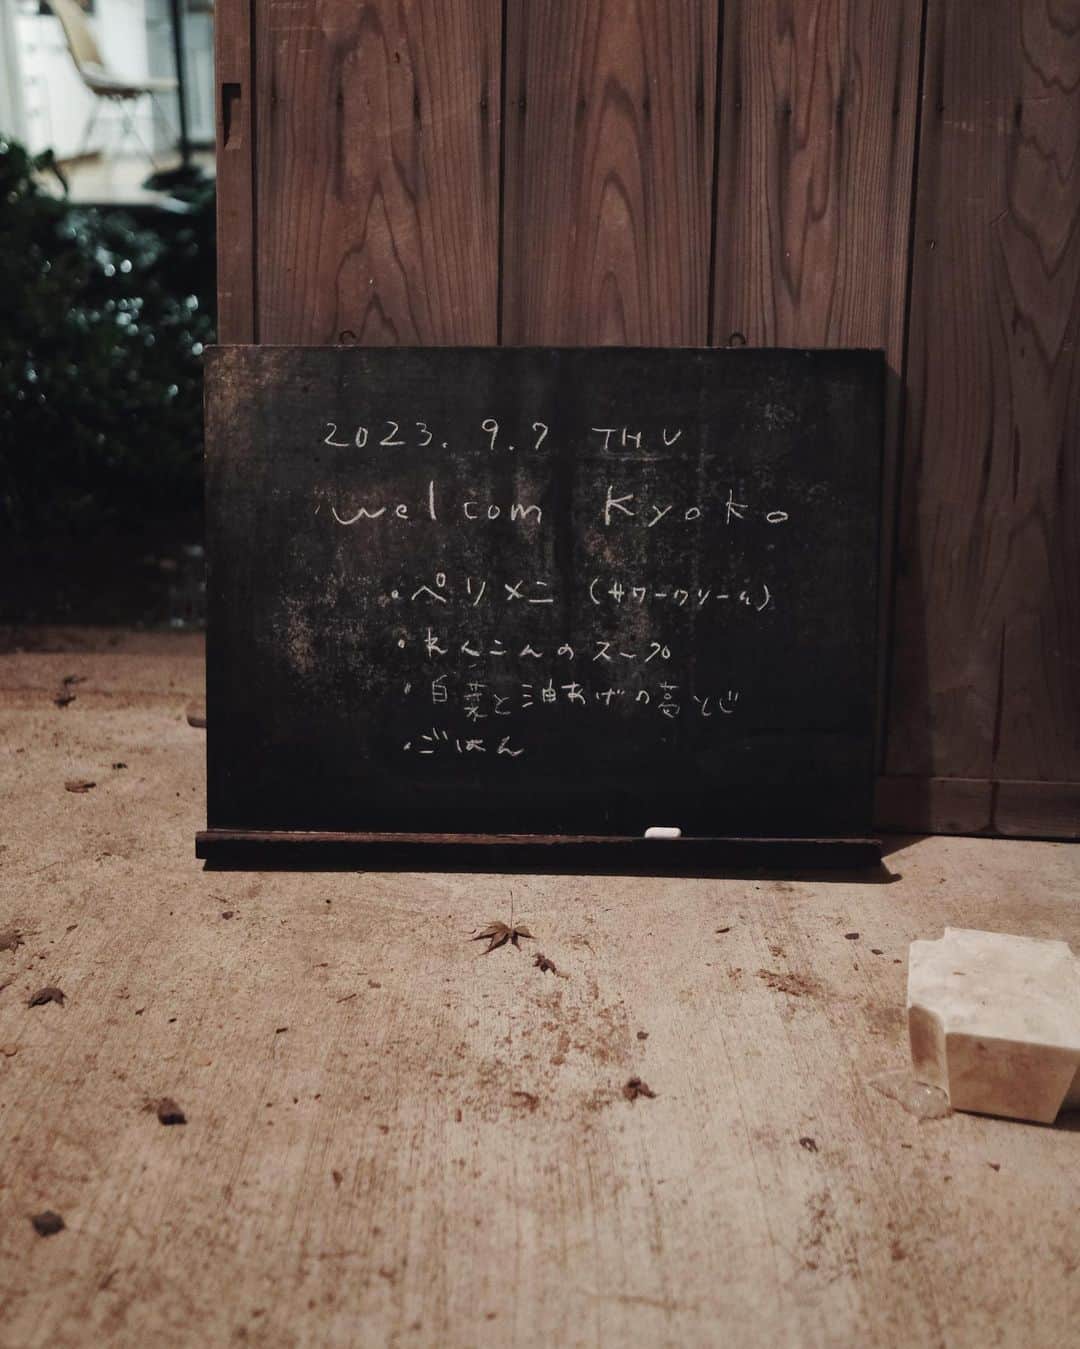 2023. 9.7 THU
welcom Kyoko
・ペリメニ (サワークリーム)
・れんこんのスープ
・白菜と油あげの卵とじ
・ごはん